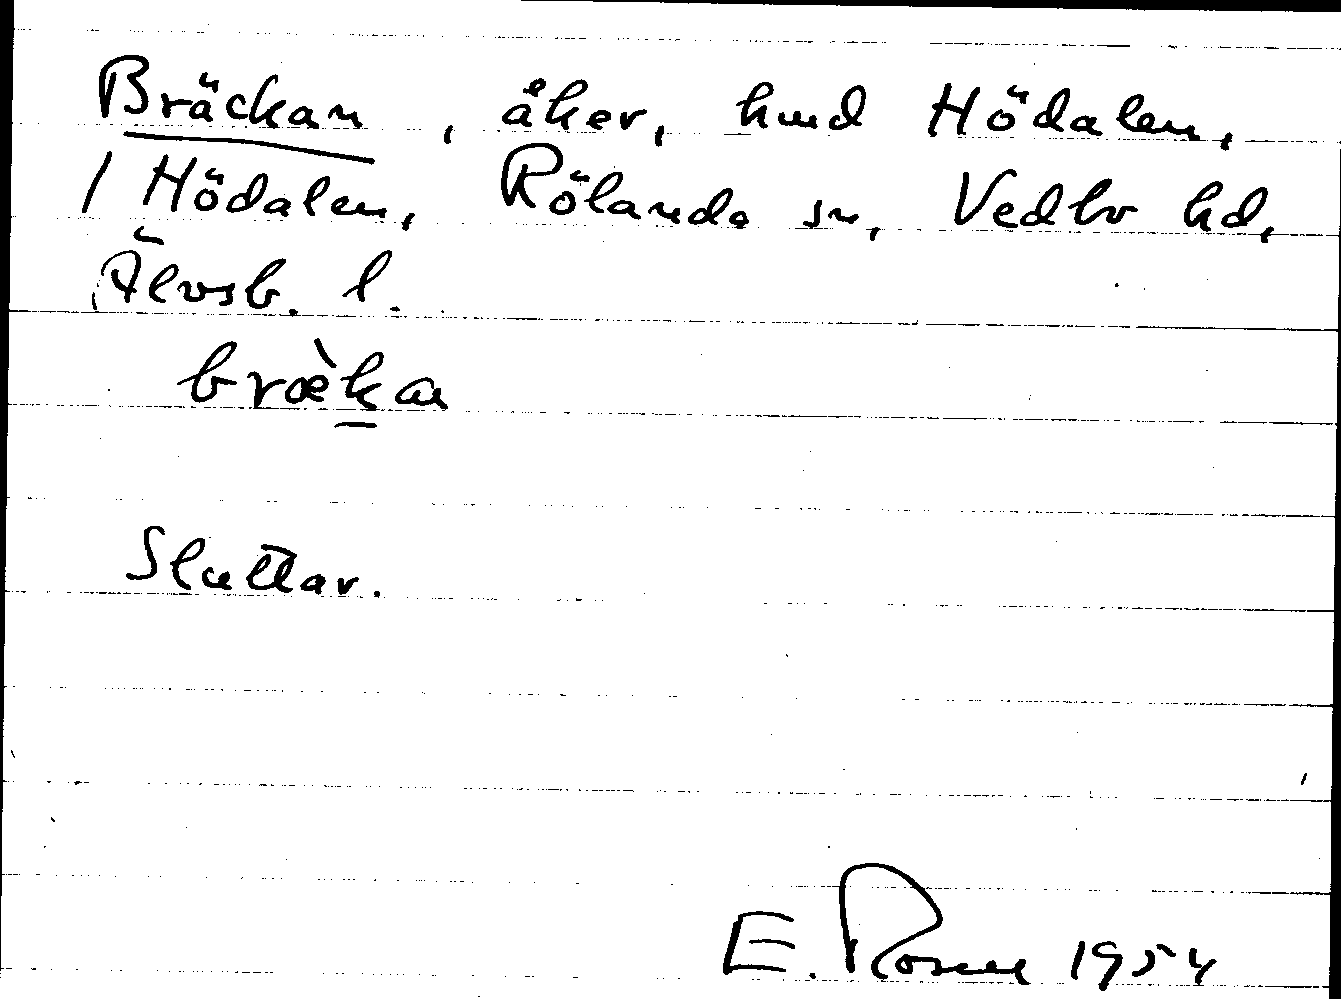 Bräckan, åker, hmd Hödalen,
1 Hödalen, Rölanda sn, Vedbo hd,
Älvsb. l.
bræ̀k̠a
Sluttar.
E. 1954